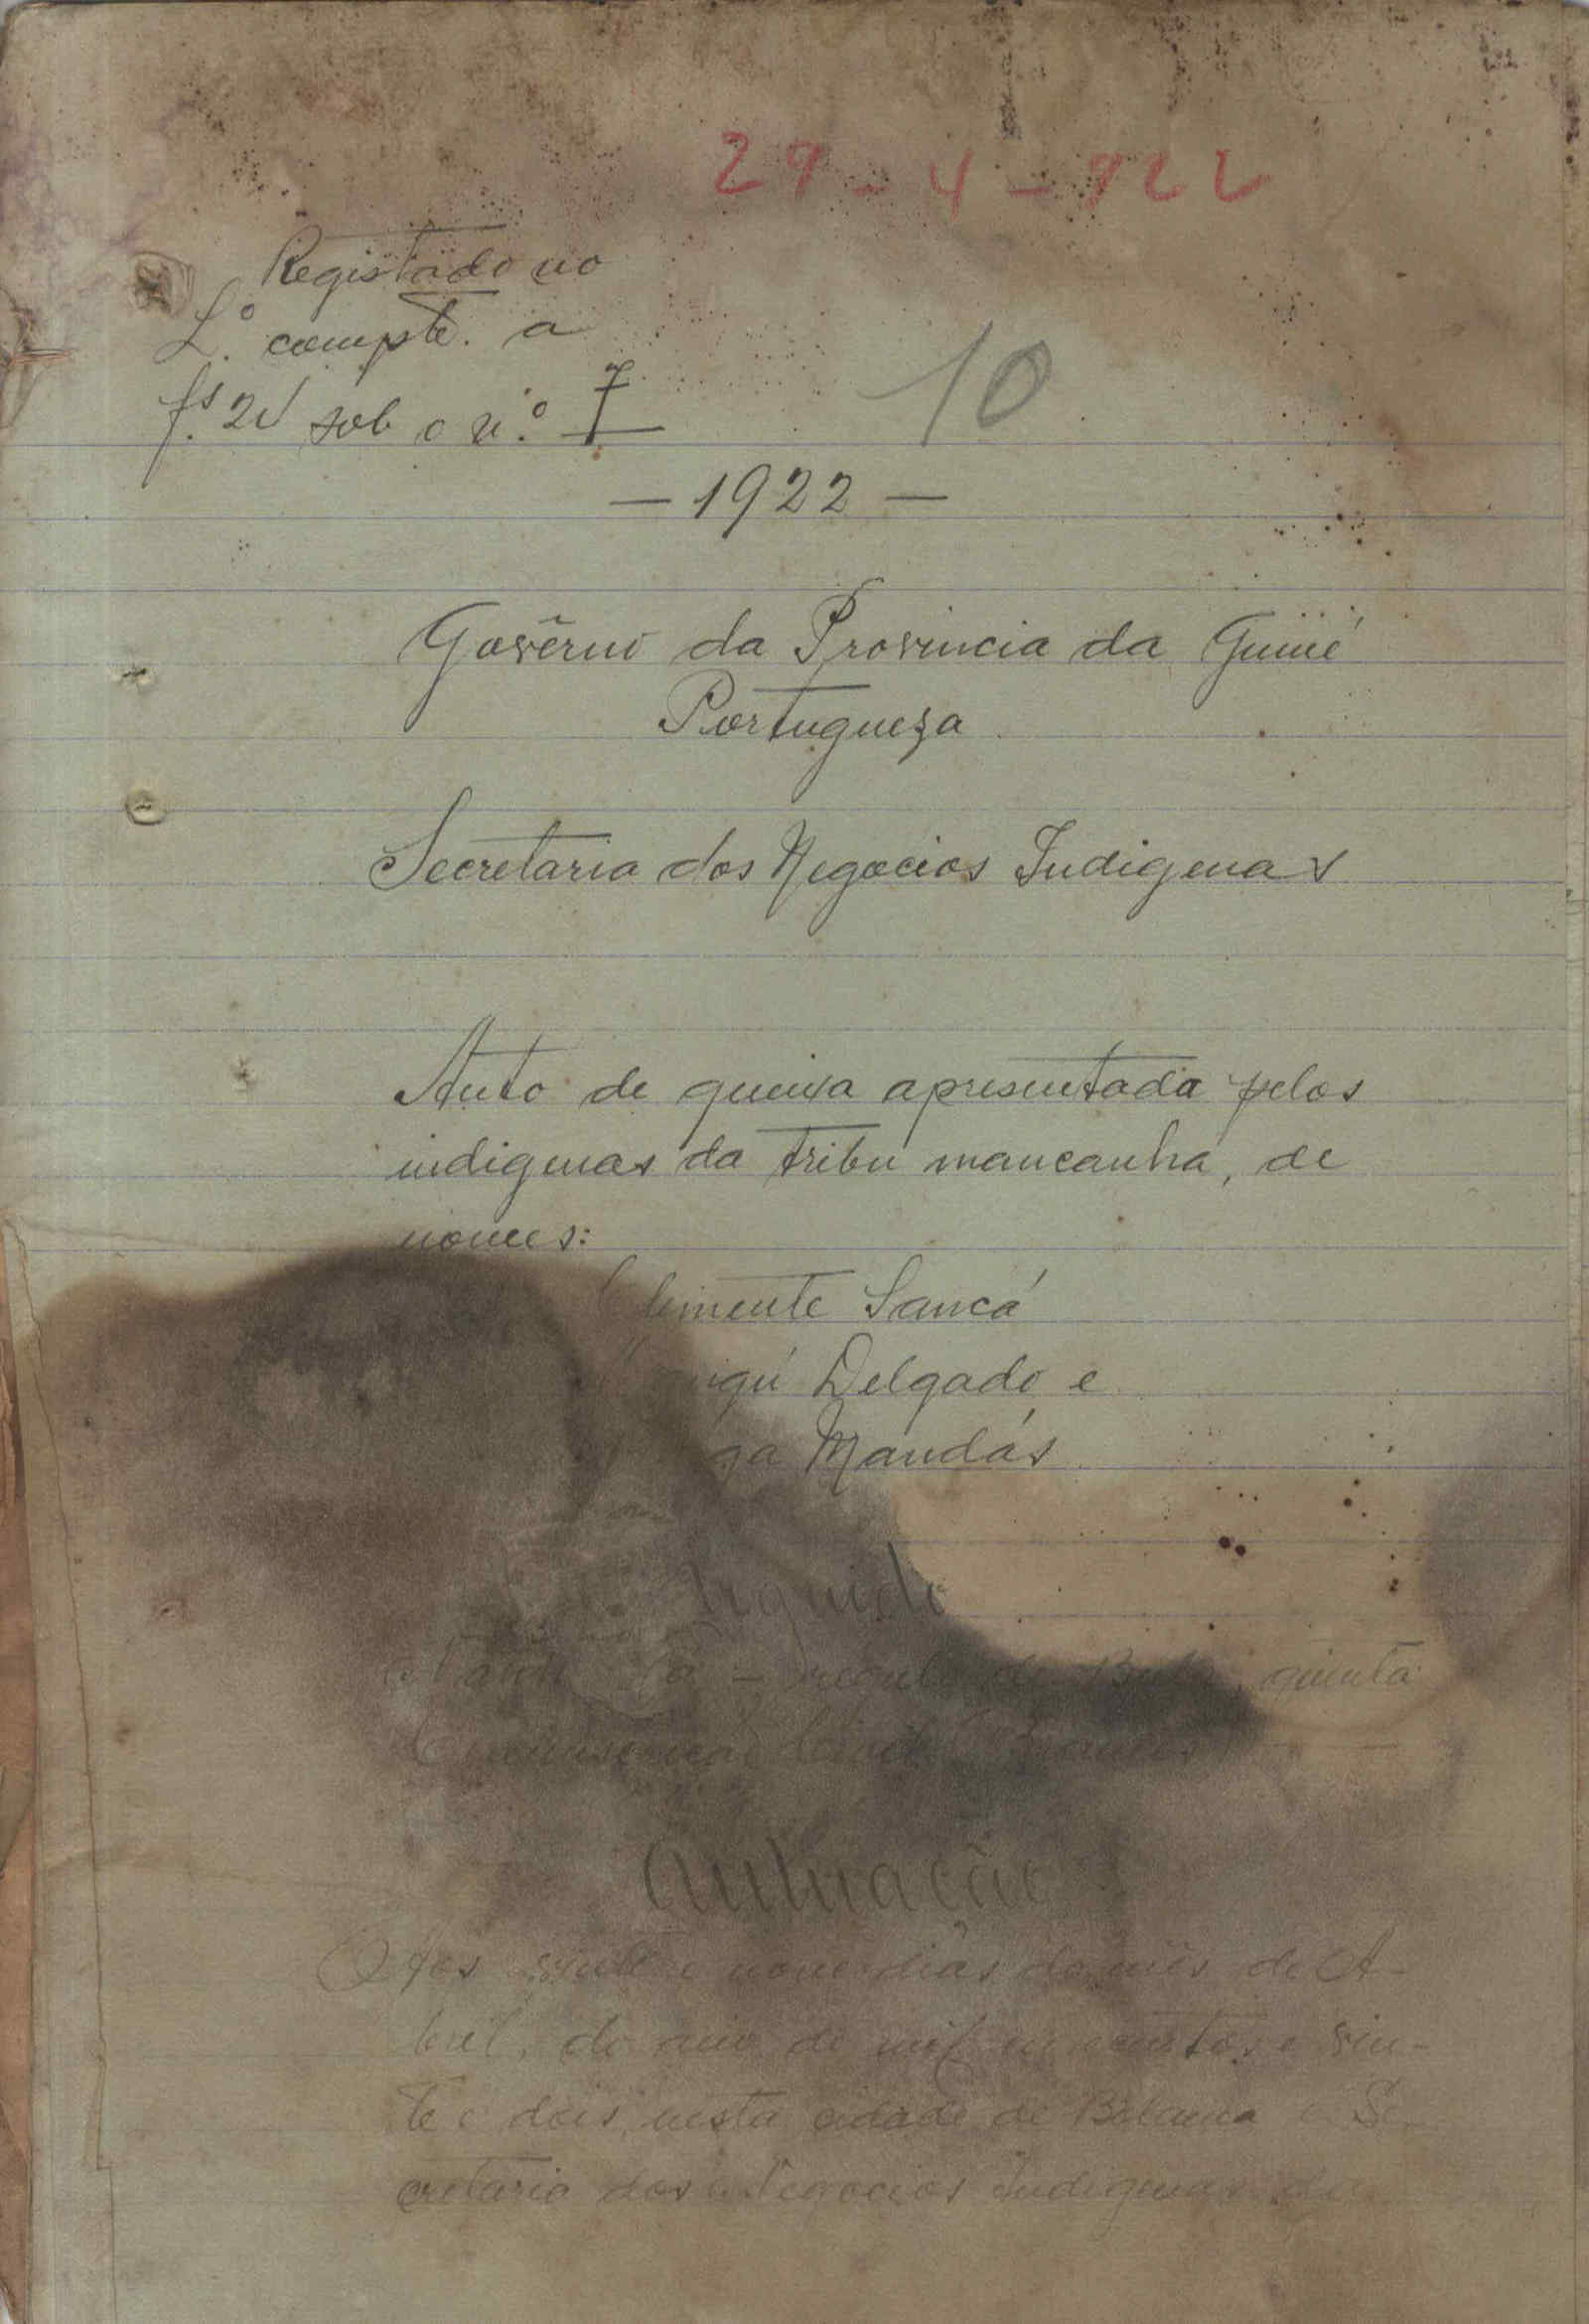 29-4-922
Registado no
L.º compte. a
fs. 2v sob o n.º 7
10
— 1922 —
Govêrno da Provincia da Guiné
Portugueza
Secretaria dos Negocios Indigenas
Auto de queixa apresentada pelos
indigenas da tribu mancanha, de
nomes:
Clemente Sancá
Delgado e
Mandás
Arguido
regulo de Bula, quinta
Autuação
Aos vinte e nove dias do mês de A-
bril, do ano de mil novecentos e vin-
te e dois, nesta cidade de Bolama e Se-
cretaria dos Negocios Indigenas